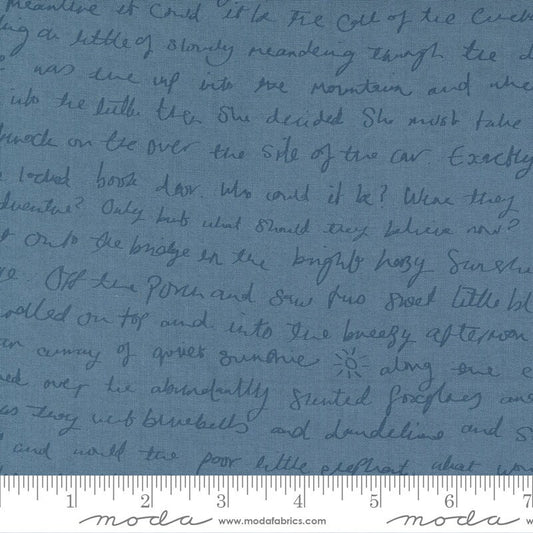 meantime it could it be the call of the
ling on little of slowly meandering through the d
was up into the mountain and whe
into the little then she decided She must take
knock on the over the side of the car. Exactly
locked book door. Who could it be? Were they
dventure? Only but what should they believe now?
onto the bridge in the bright hazy Sunshi
ve. Off the Porch and saw two sweet little bl
on top and into the breezy afternoon
of quiet sunshine along one
ned over the abundantly scented foxgloves and
as they bluebells and dandelions and s
and would the poor little elephant what won
1 2 3 4 5 6 7
moda www.modafabrics.com moda